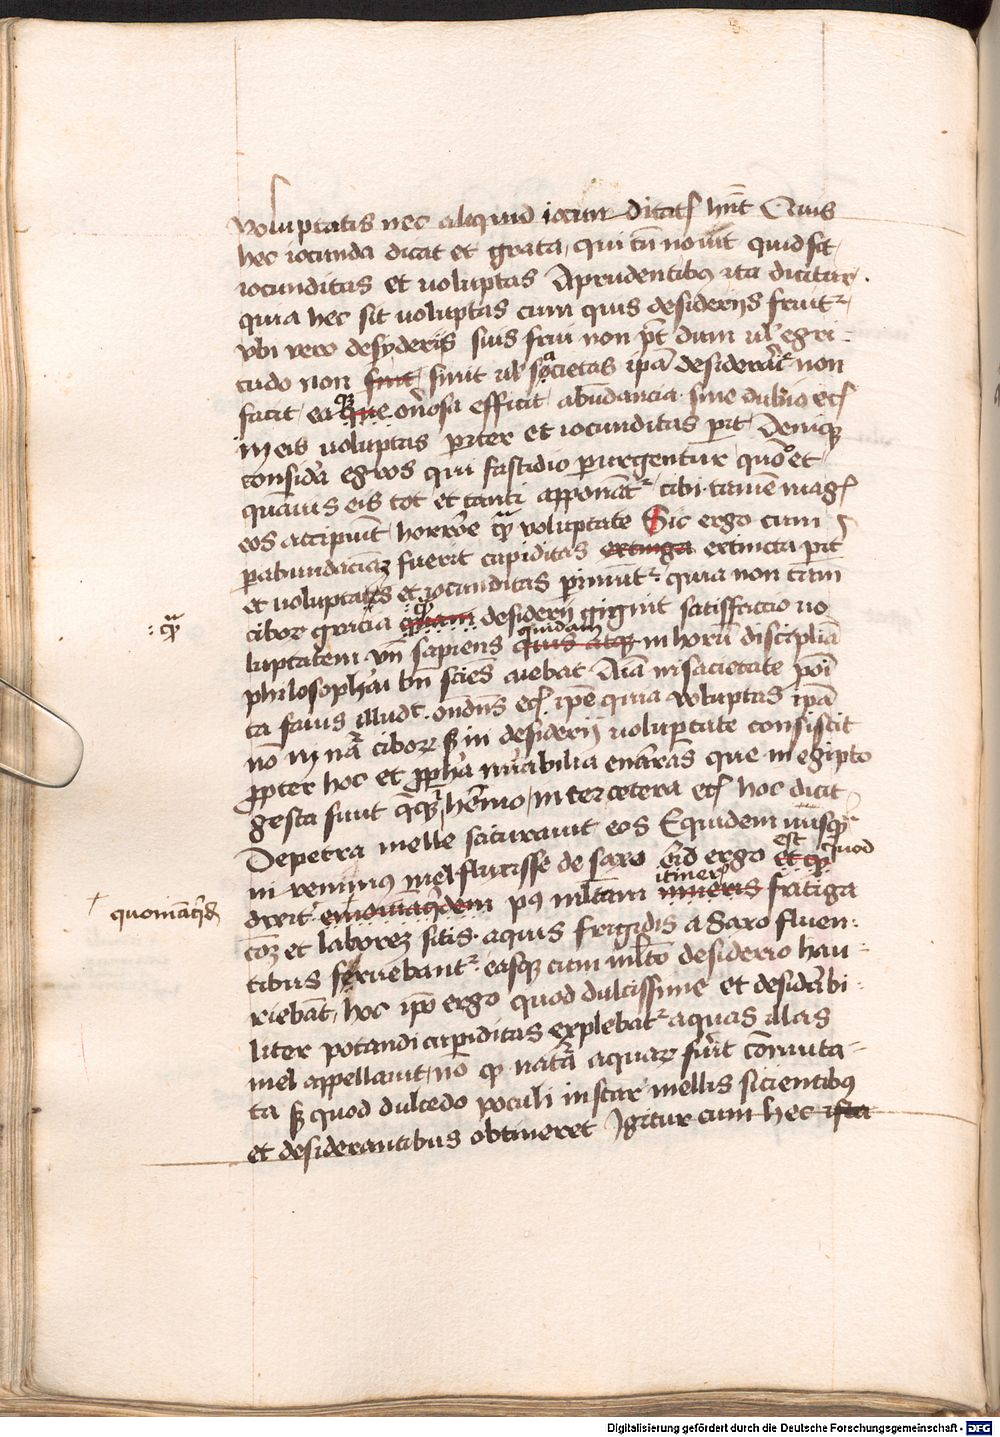 voluptatis nec aliquid iocunditatis hnt Quis
hec iocunda dicat et grata, qui tn novit quid sit
iocunditas et voluptas Aprudentibus ita dicitur.
quia hec sit voluptas cum quis desiderijs fruit
vbi vero desyderis suis frui non pt dum vl egri-
tudo non sinit sinit vl socrietas ipa desiderare non
facit, ea que onosa efficit, abundancia sine dubio et
in eis voluptas pariter et iocunditas perit Deniqz
considera egros qui fastidio purgentur quo et
quavis eis tot et tanti apponant cibi tame mag
eos accipiut horrore qa voluptate Sic ergo cum
p abundacia fuerit cupiditas extinga extincta pit
et voluptates et iocunditas perimut quia non tam
: qa
cibor gracia quam desiderij gignit satisffactio vo
luptatem vn sapiens quidam quis atqz in horu discipliā
philosophai bn scies aiebat Aia in sacietate poi
ta favis illudt ondns et ipe quia voluptas ipa
no in na cibor s in desiderij voluptate consistit
ppter hoc et ppha mirabilia enarras que in egipto
gesta sunt heremo inter cetera et hoc dicit
De petra melle saturavit eos Equidem nusqz
est quod
in venimus mel fluxisse de saxo Quid ergo et
itiner
quoniaqd
dixit post multam itineris fatiga
coz et laborez sitis aquis frigidis a Saxo fluen:
tibus servebant easqz cum multo desiderio hau
riebat, hoc ipo ergo quod dulcissime et desiderabi
liter potandi cupiditas explebat aquas illas
mel appellavit, no qz natura aquar fuit comuta-
ta s quod dulcedo poculi instar mellis sicientibus
et desiderantibus obtineret Igitur cum hec ista
Digitalisierung gefördert durch die Deutsche Forschungsgemeinschaft - DFG